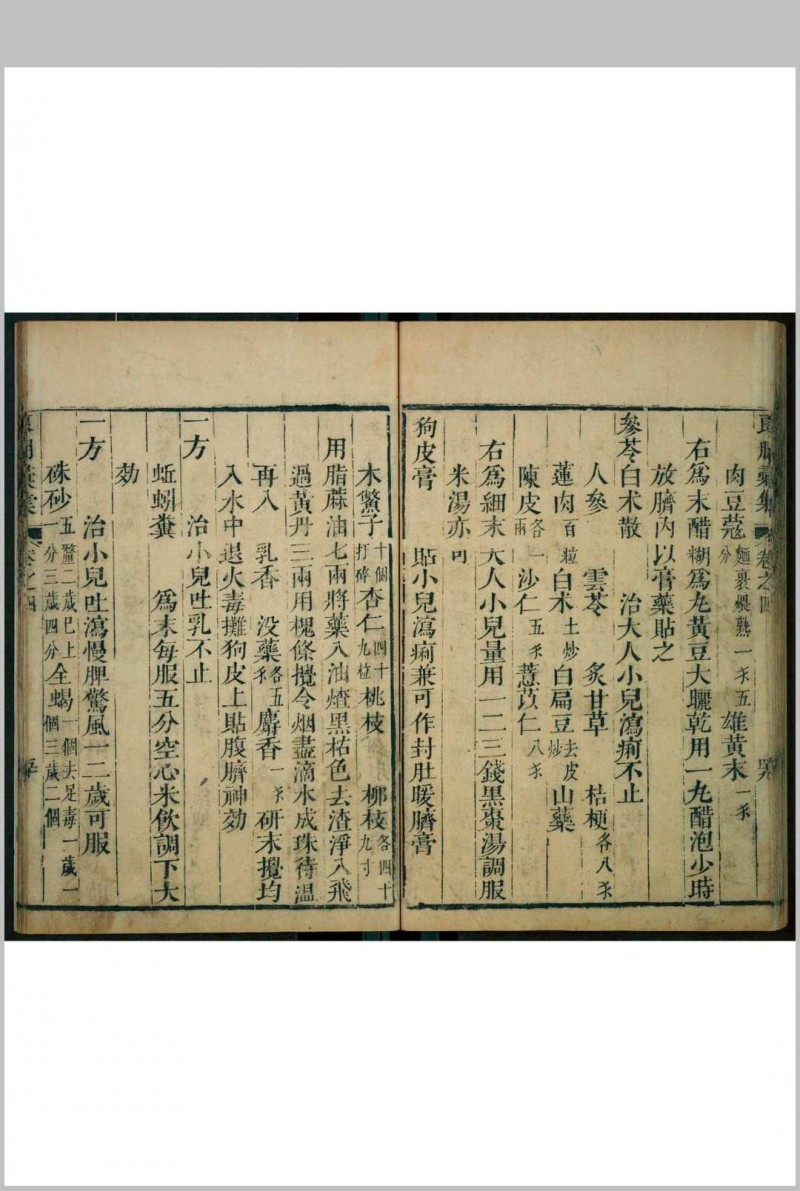 集卷之四
肉豆蔻麵裹煨熟一錢五分 雄黃末一錢
右爲末醋糊爲丸黃豆大曬乾用一丸醋泡少時
放臍內以膏藥貼之
參苓白朮散 治大人小兒瀉痢不止
人參 雲苓 炙甘草 桔梗各八錢
蓮肉百粒 白朮土炒 白扁豆去皮炒 山藥
陳皮各一兩 沙仁五錢 薏苡仁八錢
右爲細末大人小兒量用一二三錢黑棗湯調服
米湯亦可
狗皮膏 貼小兒瀉痢兼可作封肚暖臍膏
木鱉子十個打碎 杏仁四十九粒 桃枝 柳枝各四十九寸
用脂蔴油七兩將藥入油煠黑枯色去渣淨入飛
過黃丹三兩用槐條攪令烟盡滴水成珠待溫
再入 乳香 沒藥各五錢 麝香一錢 研末攪均
入水中退火毒攤狗皮上貼腹臍神効
一方 治小兒吐乳不止
蚯蚓糞 爲末每服五分空心米飲調下大
効
一方 治小兒吐瀉慢脾驚風一二歲可服
硃砂五釐二歲已上一分三歲四分 全蝎一個去足毒一歲一個三歲二個
卷之四